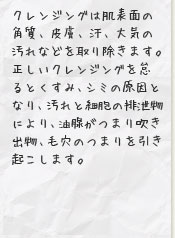 クレンジングは肌表面の
角質、皮膚、汗、大気の
汚れなどを取り除きます。
正しいクレンジングを怠
るとくすみ、シミの原因と
なり、汚れと細胞の排泄物
により、油腺がつまり吹き
出物、毛穴のつまりを引き
起こします。